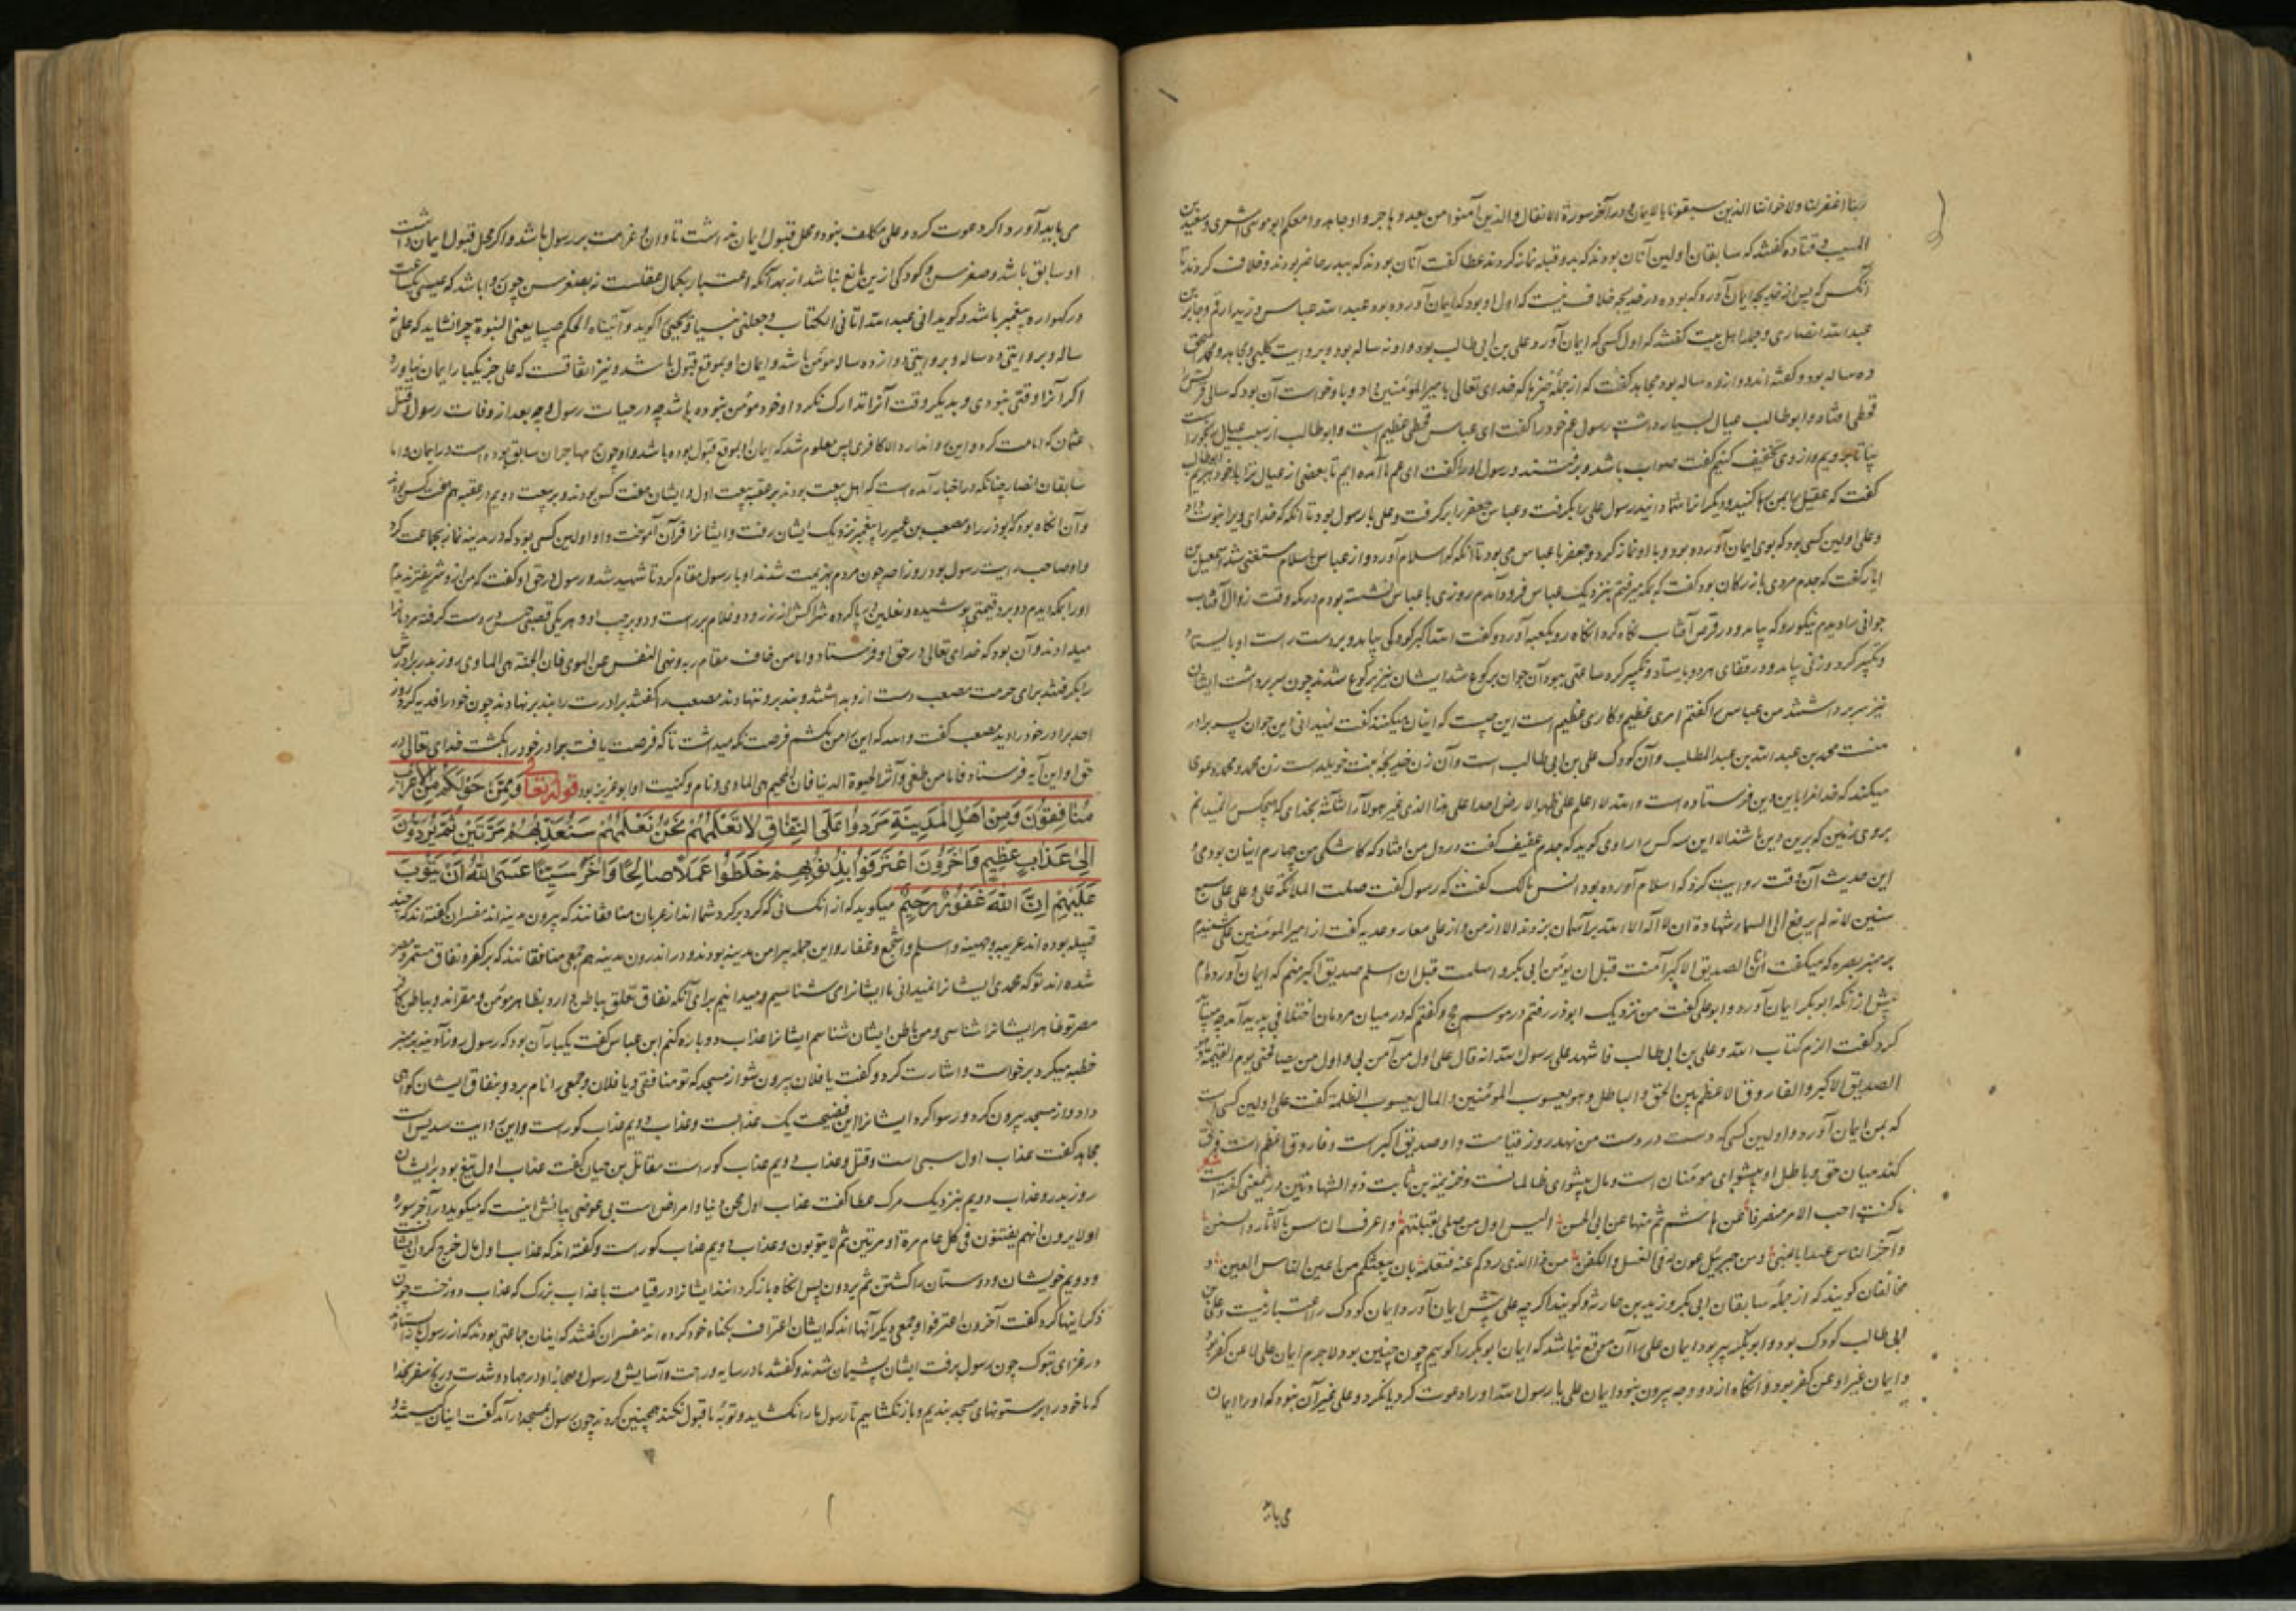 ربنا اغفر لنا ولاخواننا الذین سبقونا بالایمان و در آخر سورة الانفال والذین آمنوا من بعد و هاجروا و جاهدوا معکم ابو موسی اشعری و سعید بن
المسیب و قتاده گفتند که سابقان اولین آنان بودند که بدو قبله نماز کردند عطا گفت آنان بودند که ببدر حاضر بودند و خلاف کردند تا
آنکس که پس از خدیجه ایمان آورد که بود و در خدیجه خلاف نیست که اول او بود که ایمان آورده بود عبد الله عباس و زید ارقم و جابر بن
عبد الله انصاری و جمله اهل بیت گفتند که اول کسی که ایمان آورد علی بن ابی طالب بود و او نه ساله بود و بروایت کلبی و مجاهد و محمد اسحق
ده ساله بود و گفته‌اند دوازده ساله بود مجاهد گفت که از جمله چیزها که خدای تعالی بامیر المؤمنین داد و باو خواست آن بود که سالی قریش را
قحطی افتاد و ابو طالب عیال بسیار داشت رسول عم خود را گفت ای عباس قحطی عظیم است و ابو طالب از سبب عیال رنجور است
بیا تا برویم و از وی تخفیف کنیم گفت صواب باشد و برفتند و رسول او را گفت ای عم ما آمده ایم تا بعضی از عیال ترا با خود بریم ابوطالب
گفت که عقیل را بمن رها کنید و دیگر انرا شما دانید رسول علی را بگرفت و عباس جعفر را برگرفت و علی با رسول بود تا آنکه که خدای ویرا نبوت داد
و علی اولین کسی بود که بوی ایمان آورده بود و با او نماز کرد و جعفر با عباس می بود تا آنکه که اسلام آورد و از عباس باسلام مستغنی شد اسمعیل بن
ایاز گفت که جدم مردی بازرگان بود گفت که بمکه رفتم بنزدیک عباس فرود آمدم روزی با عباس نشسته بودم در مکه وقت زوال آفتاب
جوانی را دیدم نیکو رو که بیامد و در قرص آفتاب نگاه کرد انگاه رو بکعبه آورد و گفت الله اکبر کودکی بیامد و بر دست راست او بایستاد
و تکبیر کرد و زنی بیامد و در قفای هر دو بایستاد و تکبیر کرد ساعتی ببود آن جوان برکوع شد ایشان نیز برکوع شدند چون سر برداشت ایشان
نیز سر برداشتند من عباس را گفتم امری عظیم و کاری عظیم است این چیست که اینان میکنند گفت نمیدانی این جوان پسر برادر
منست محمد بن عبد الله بن عبد المطلب و آن کودک علی بن ابی طالب است و آن زن خدیجه بنت خویلد است زن محمد و محمد دعوی
میکند که خدا مرا باین دین فرستاده است و الله لا اعلم علی ظهر الارض احدا علی هذا الدین غیر هولاء الثلثه بخدای که هیچکس را نمیدانم
بر روی زمین که برین دین باشد الا این سه کس را راوی گوید که جدم عفیف گفت در دل من افتاد که کاشکی من چهارم اینان بودمی و
این حدیث آن وقت روایت کرد که اسلام آورده بود انس مالک گفت که رسول گفت صلت الملائکة علی و علی علی سبع
سنین لانه لم یرفع الی السماء شهادة ان لا اله الا الله برآسمان نبردند الا از من و از علی معاذه عدویه گفت از امیر المؤمنین علی شنیدم
بر منبر بصره که میگفت انا الصدیق الاکبر آمنت قبل ان یؤمن ابی بکر و اسلمت قبل ان اسلم صدیق اکبر منم که ایمان آورده‌ام
پیش از آنکه ابو بکر ایمان آورد و ابو علی گفت من نزدیک ابوذر رفتم در موسم حج و گفتم که در میان مردمان اختلافی پدید آمد چه میباید
کرد گفت الزم کتاب الله و علی بن ابی طالب فاشهد علی رسول الله انه قال علی اول من آمن بی و اول من یصافحنی یوم القیمة و هو
الصدیق الاکبر و الفاروق الاعظم بین الحق و الباطل و هو یعسوب المؤمنین و المال یعسوب الظلمة گفت علی اولین کسی است
که بمن ایمان آورد و اولین کسی که دست در دست من نهد روز قیامت و او صدیق اکبر است و فاروق اعظم است فرق
کند میان حق و باطل او پیشوای مومنان است و مال پیشوای ظالمانست و خزیمة بن ثابت ذو الشهادتین در ینمعنی گفته است شعر
ما کنت احسب الامر منصرفا عن هاشم ثم منها عن ابی الحسن الیس اول من صلی بقبلتهم و اعرف الناس بالآثار و السنن
و آخر الناس عهدا بالنبی و من جبریل عون له فی الغسل و الکفن من ذا الذی ردکم عنه فنعلمه بان بیعتکم من اعین الناس الغبن و
مخالفان گویند که از جمله سابقان ابی بکر و زید بن حارثه و گویند اگرچه علی پیش ایمان آورد ایمان کودک را اعتبار نیست و علی بن
ابی طالب کودک بود و ابو بکر پیر بود ایمان علی را آن موقع نباشد که ایمان ابوبکر را گوییم چون چنین بود لاجرم ایمان علی لا عن کفر بود
و ایمان غیر او عن کفر بود و آنگاه از دو وجه بیرون نبود ایمان علی یا رسول الله او را دعوت کرد یا نکرد و علی غیر آن نبود که او را ایمان
می باید
می باید آورد اگر دعوت کرد و علی مکلف نبود و محل قبول ایمان نداشت تاوان و غرامت بر رسول باشد و اگر محل قبول ایمان داشت
او سابق باشد و صغر سن و کودکی ازین مانع نباشد از بهر آنکه اعتبار بکمال عقلست نه بصغر سن چون روا باشد که عیسی یکساعت
در گهواره پیغمبر باشد و گوید انی عبد الله اتانی الکتاب و جعلنی نبیا و یحیی را گوید و آتیناه الحکم صبیا یعنی النبوة چرا نشاید که علی نه
ساله و بروایتی ده ساله و بروایتی دوازده ساله مومن باشد و ایمان او بموقع قبول باشد و نیز اتفاقست که علی جز یکبار ایمان نیاورد
اگر آنرا وقتی نبودی و بدیگر وقت آنرا تدارک نکرد او خود مومن نبوده باشد چه در حیات رسول و چه بعد از وفات رسول و قتل
عثمان که امامت کرد و این روا ندارد الا کافری پس معلوم شد که ایمان او بموقع قبول بوده باشد و او چون مهاجران سابق بوده است در ایمان و اما
سابقان انصار چنانکه در اخبار آمده است که اهل بیعت بودند بر عقبه بیعت اول و ایشان هفت کس بودند و بر بیعت دویم در عقبه هم هفت کس بودند
و آن انگاه بود که بوذر را و مصعب بن عمیر را پیغمبر نزدیک ایشان رفت و ایشانرا قرآن آموخت و او اولین کسی بود که در مدینه نماز بجماعت کرد
و او صاحب رایت رسول بود روز احد چون مردم بهزیمت شدند او با رسول مقام کرد تا شهید شد و رسول در حق او گفت که
او را بمکه دیدم دو برد قیمتی پوشیده و نعلین در پا کرده شراکش از زر و دو غلام بر راست و دو بر چپ او و هر یکی قصبی حیس در دست گرفته مردمانرا
میدادند و آن بود که خدای تعالی در حق او فرستاد و اما من خاف مقام ربه و نهی النفس عن الهوی فان الجنة هی الماوی روز بدر برادرش
را بگرفتند برای حرمت مصعب دست از و بداشتند و بند برو ننهادند مصعب را گفتند برادرت را بند بر نهادند چون خود را فدیه کرد روز
احد برادر خود را دید مصعب گفت و الله که این را من بکشم فرصت نگه میداشت تا که فرصت یافت برادر خود را بکشت خدای تعالی در
حق او این آیه فرستاد فاما من طغی و آثر الحیوة الدنیا فان الجحیم هی الماوی و نام و کنیت او ابو عزیز بود قوله تعالی وَمِمَّنْ حَوْلَكُمْ مِنَ الْأَعْرَابِ
مُنَافِقُونَ وَمِنْ أَهْلِ الْمَدِينَةِ مَرَدُوا عَلَى النِّفَاقِ لَا تَعْلَمُهُمْ نَحْنُ نَعْلَمُهُمْ سَنُعَذِّبُهُمْ مَرَّتَيْنِ ثُمَّ يُرَدُّونَ
إِلَى عَذَابٍ عَظِيمٍ وَآخَرُونَ اعْتَرَفُوا بِذُنُوبِهِمْ خَلَطُوا عَمَلًا صَالِحًا وَآخَرَ سَيِّئًا عَسَى اللهُ أَنْ يَتُوبَ
عَلَيْهِمْ إِنَّ اللهَ غَفُورٌ رَحِيمٌ میگوید که از انکسانی که گرد بر گرد شما اند از عربان منافقانند که بیرون مدینه اند مفسران گفته‌اند که چند
قبیله بوده اند عربیه و جهینه و اسلم و اشجع و غفار و این جمله پیرامن مدینه بودند و در اندرون مدینه هم جمعی منافقانند که بر کفر و نفاق مستمر و مصر
شده اند تو که محمدی ایشانرا نمیدانی ما ایشانرا می شناسیم و میدانیم برای آنکه نفاق تعلق بباطن دارد بظاهر مومن و مقراند و بباطن کافر
مصر تو ظاهر ایشانرا شناسی و من باطن ایشان شناسم ایشانرا عذاب دو باره کنم ابن عباس گفت یکبار آن بود که رسول روز آدینه بر منبر
خطبه میکرد برخواست و اشارت کرد و گفت یا فلان بیرون شو از مسجد که تو منافقی و یا فلان و جمعی را نام برد و بنفاق ایشان گواهی
داد و از مسجد بیرون کرد و رسوا کرد ایشانرا این فضیحت یک عذابست و عذاب دویم عذاب گورست و این روایت سدیست
مجاهد گفت عذاب اول سبی است و قتل و عذاب دویم عذاب گورست مقاتل بن حیان گفت عذاب اول تیغ بود بر ایشان
روز بدر و عذاب دویم بنزدیک مرگ عطا گفت عذاب اول محن دنیا و امراض است بی عوض بیانش اینست که میگوید در آخر سوره
اولا یرون انهم یفتنون فی کل عام مرة او مرتین ثم لا یتوبون و عذاب دویم عذاب گورست و گفته اند که عذاب اول مال خرج کردن ایشان
و دویم خویشان و دوستان را کشتن ثم یردون پس انگاه بازگردانند ایشانرا در قیامت باعذاب بزرگ که عذاب دوزخست چون
ذکر اینها کرد گفت آخرون اعترفوا و جمعی دیگر آنها اند که ایشان اعتراف بگناه خود کرده اند مفسران گفتند که اینان جماعتی بودند که از رسول باز ایستادند
در غزای تبوک چون رسول برفت ایشان پشیمان شدند و گفتند ما در سایه و راحت و آسایش و رسول و صحابه او در جهاد و شدت و رنج سفر بخدا
که ما خود را بر ستونهای مسجد بندیم و باز نگشائیم تا رسول ما را نگشاید و توبه ما قبول نکند همچنین کردند چون رسول بمسجد در آمد گفت اینان کیستند و